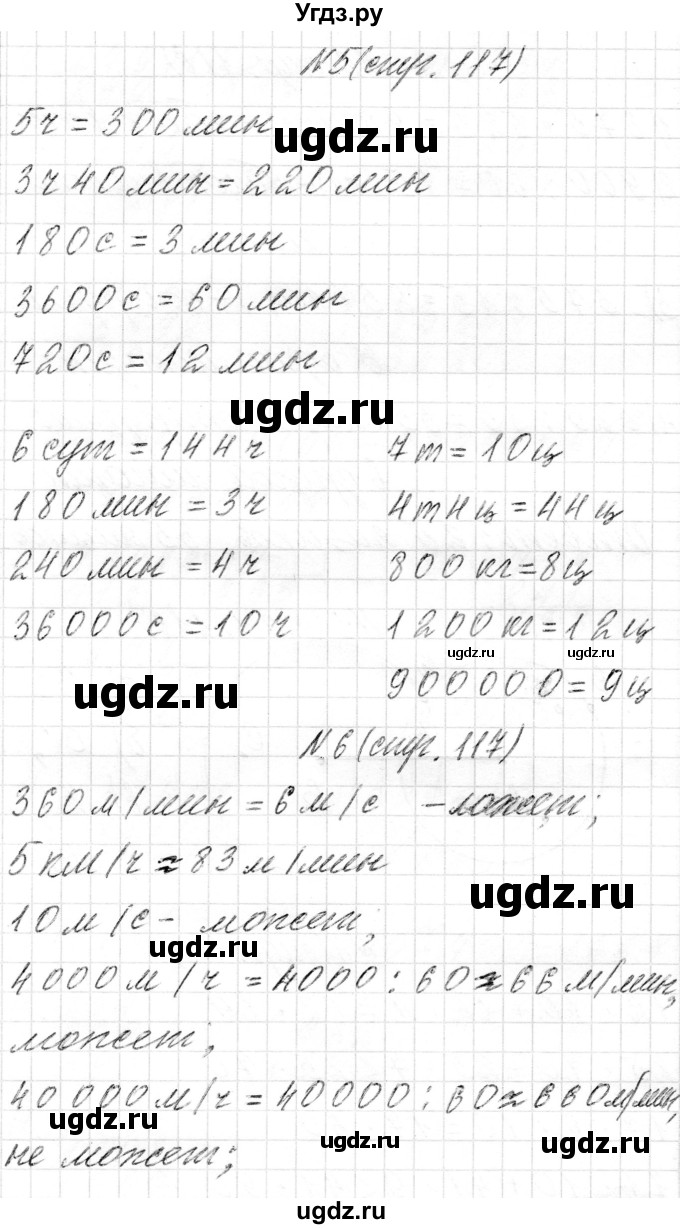 Угдз.ру
№5(стр. 117)
5ч = 300мин
ugdz.ru
3ч 40мин = 220мин
180с = 3 мин
3600с = 60мин
720с = 12 мин
ugdz.ru
6 сут = 144ч
180мин = 3ч
240мин = 4ч
36000с = 10ч
7т = 10ц
4т4ц = 44ц
800кг=8ц
1200кг=12ц
ugdz.ru ugdz.ru
900000=9ц
ugdz.ru
№6(стр. 117)
360м/мин = 6м/с – может;
5км/ч ≈ 83м/мин
ugdz.ru
10м/с – может;
ugdz.ru
4000м/ч = 4000 : 60 ≈ 66м/мин,
может;
40000м/ч = 40000 : 60 ≈ 660м/мин,
ugdz.ru ugdz.ru ugdz.ru
не может;
ugdz.ru